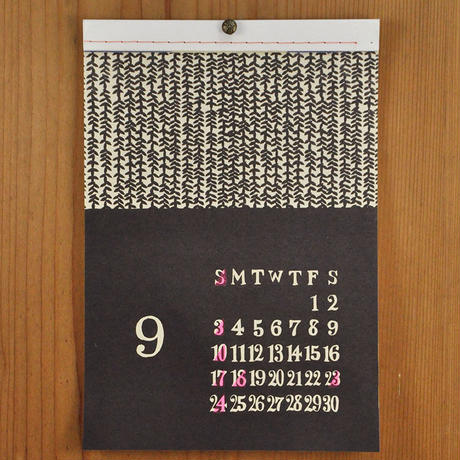 S M T W T F S
1 2
3 4 5 6 7 8 9
9
10 11 12 13 14 15 16
17 18 19 20 21 22 23
24 25 26 27 28 29 30